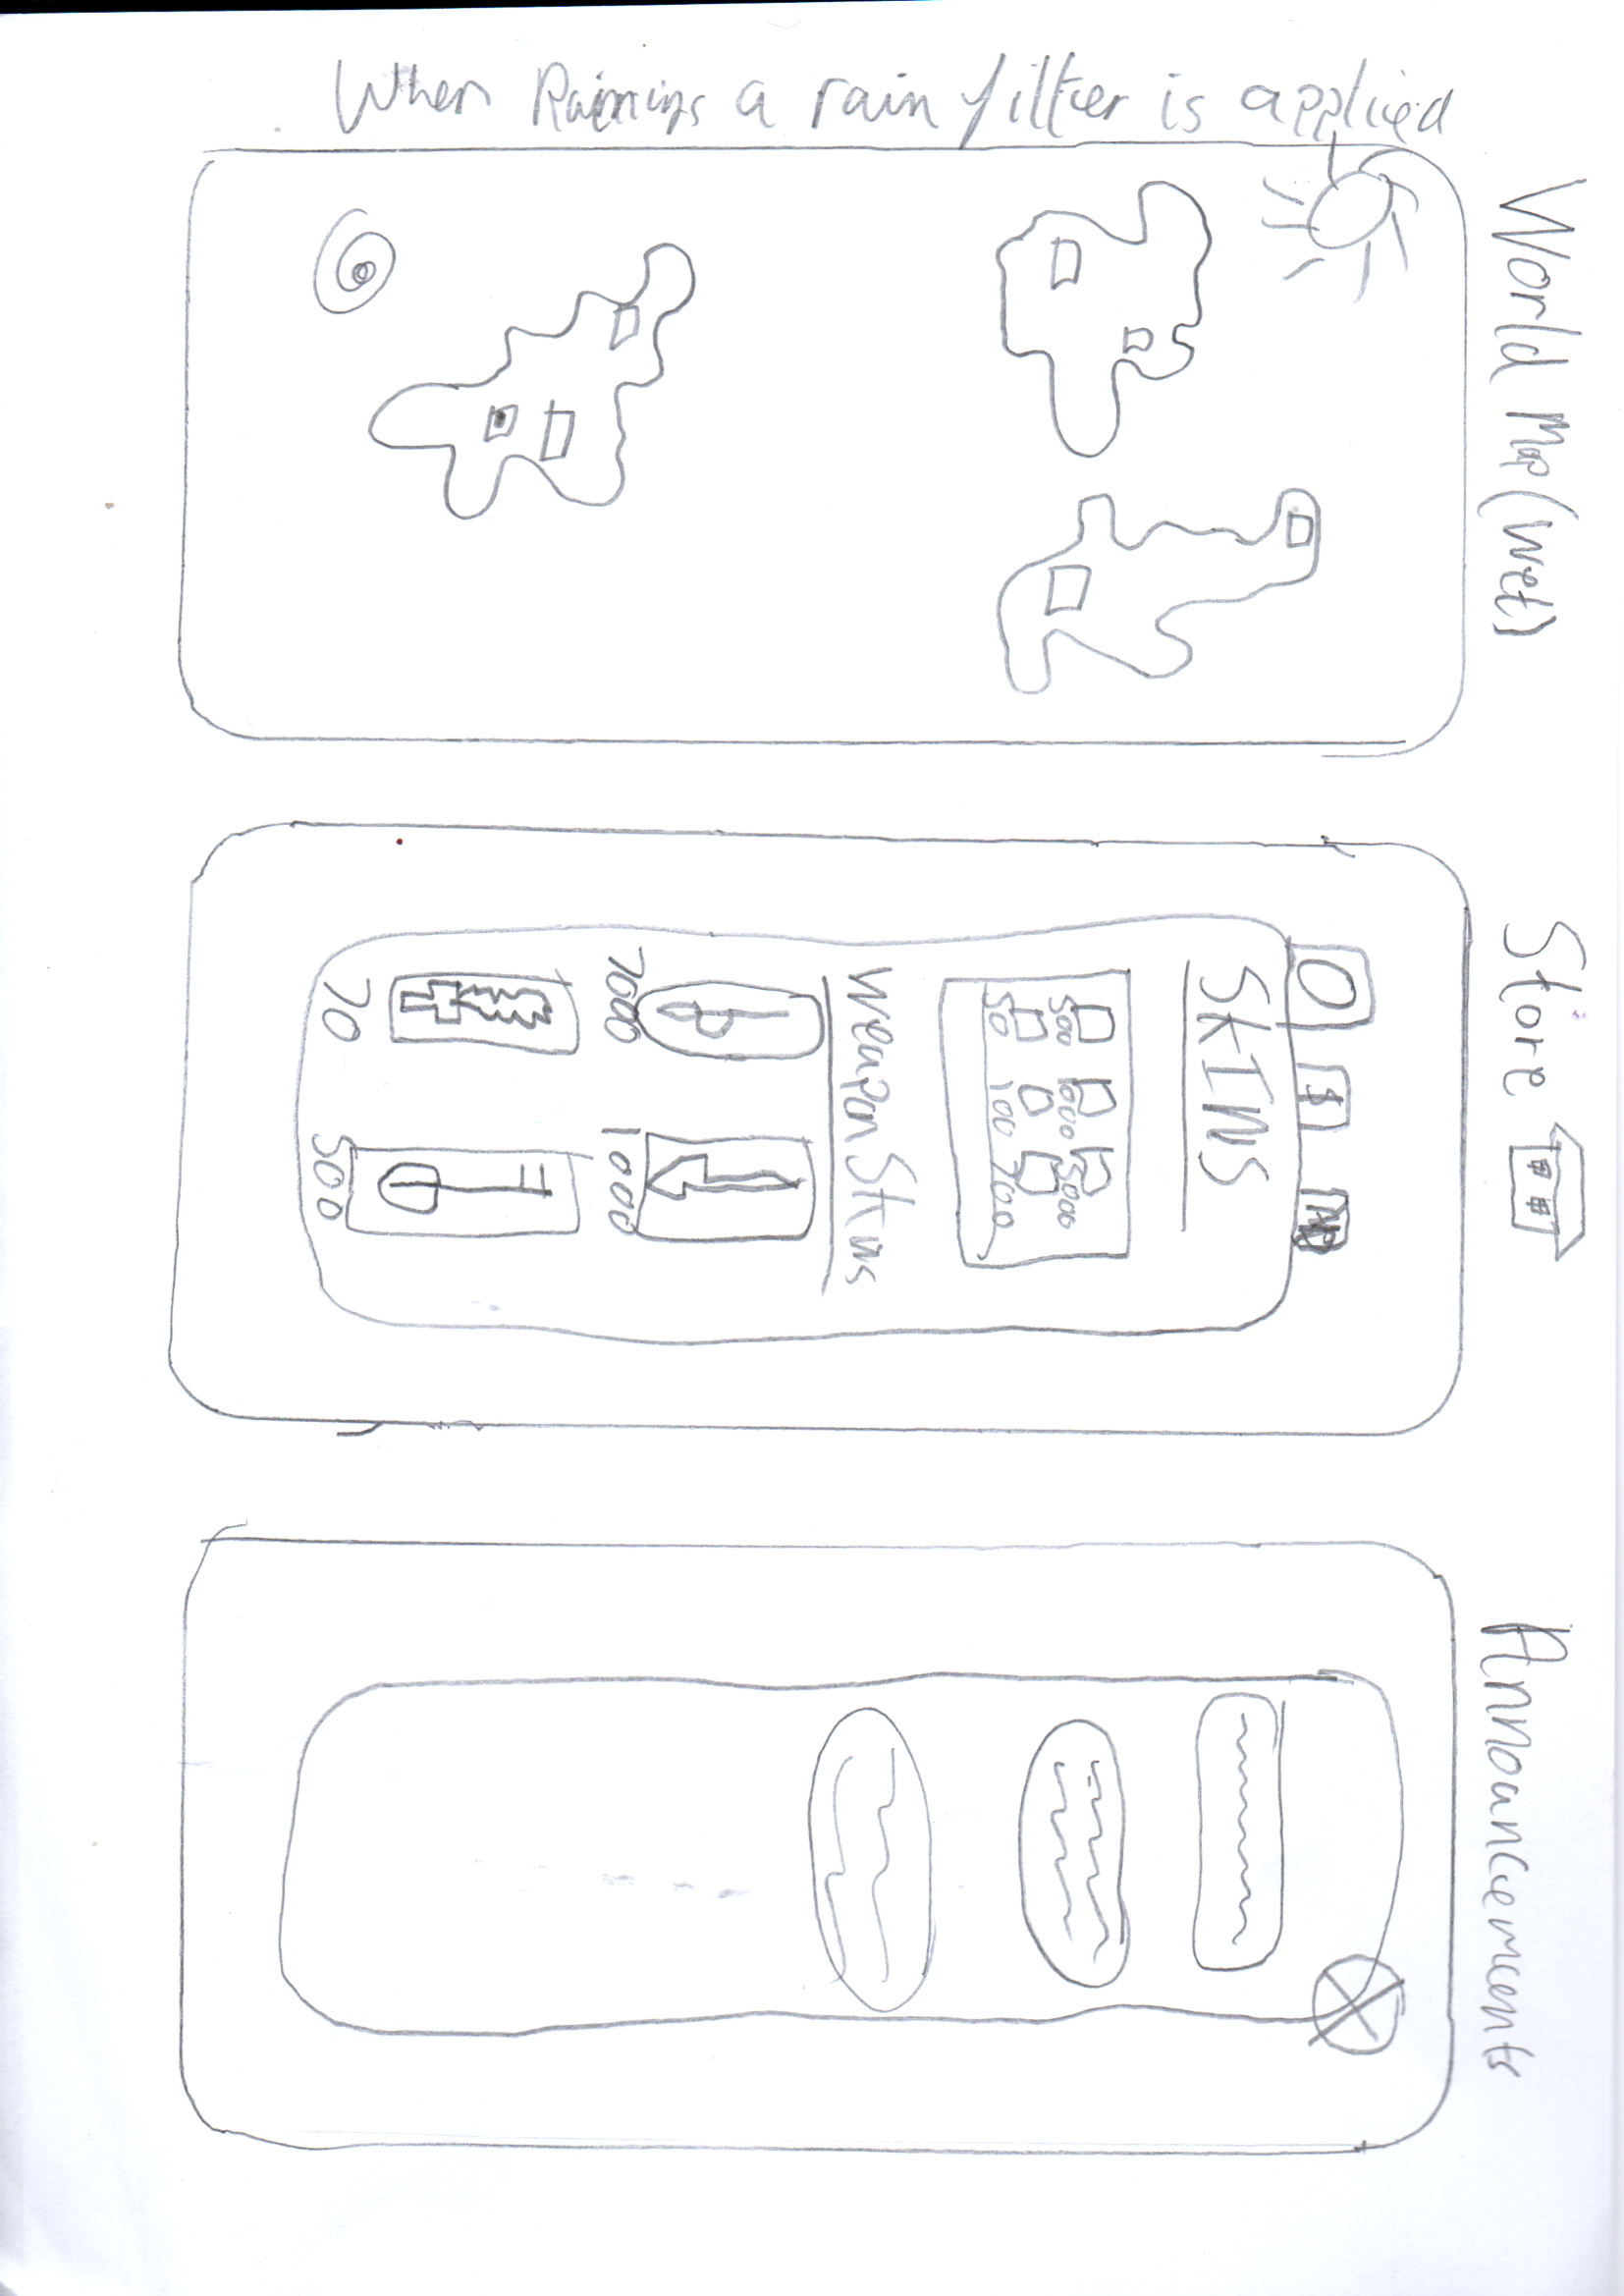 When Raining a rain filter is applied
World Map (wet)
Store
$ $
$
SKINS
500 1000 5000
50 100 700
Weapon Skins
7000 1000
70 500
Annoancements